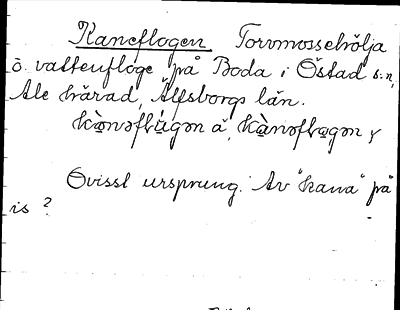 Kaneflogen Torvmossehölja
o. vattenfloge på Boda i Östad s:n,
Ale härad, Älfsborgs län.
kàneflågen å, kàneflogen y
Ovisst ursprung. Av "kana" på
is ?